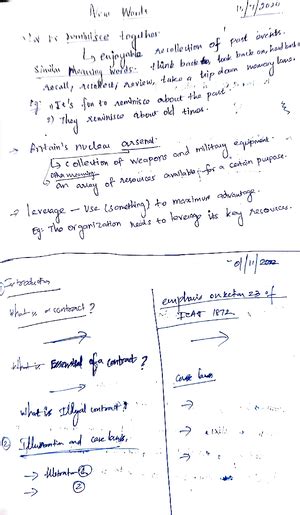 New Words
11/11/2020
reminisce together
↳ enjoyable recollection of past events.
Similar Meaning words: think back to, look back on, hark back
recall, recollect, review, take a trip down memory lane.
Eg: 1) It's fun to reminisce about the past
2) They reminisce about old times.
→ Britain's nuclear arsenal
↳ collection of weapons and military equipment.
other meaning
an array of resources available for a certain purpose.
→ Leverage — Use (something) to maximum advantage.
Eg: The organization needs to leverage its key resources.
① Introduction
What is a contract?
→
What is Essential of a contract?
→
What is Illegal contract?
② Illustration and case laws.
→ Illustration ①
→ ②
emphasis on section 23 of
ICA 1872
→
Case laws
→
→
→